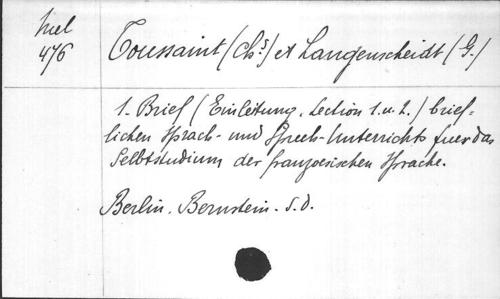 Mel
476
Toussaint (Chs) et Langenscheidt (G.)
1. Brief (Einleitung, Lection 1. u. 2.) brief=
lichen Sprach- und Sprech-Unterrichts fuer das
Selbststudium der franzoesischen Sprache.
Berlin. Bernstein. S. D.